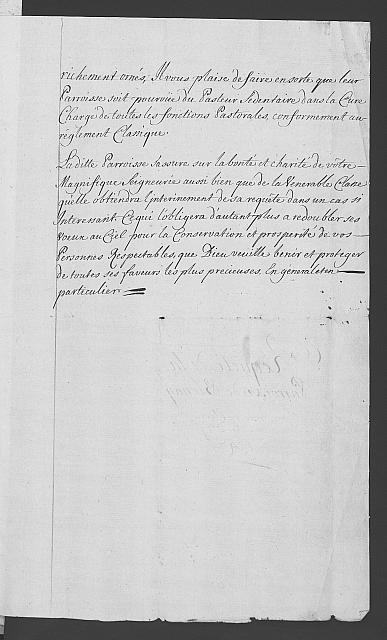 richement ornés, Il vous plaise de faire en sorte que leur
Parroisse soit pourvüe du Pasteur Sedentaire dans la Cure
Chargé de toutes les fonctions Pastorales, conformement au
réglement Classique.
La ditte Parroisse s'assure sur la bonté et charité de vôtre
Magnifique Seigneurie aussi bien que de la Venerable Classe
quelle obtiendra l'enterinement de sa requête dans un cas si
Interessant Ce qui l'obligera d'autant plus a redoubler ses
voeux au Ciel pour la Conservation et prosperité de vos
Personnes Respectables, que Dieu veuille benir et proteger
de toutes ses faveurs les plus precieuses, En general et en
particulier